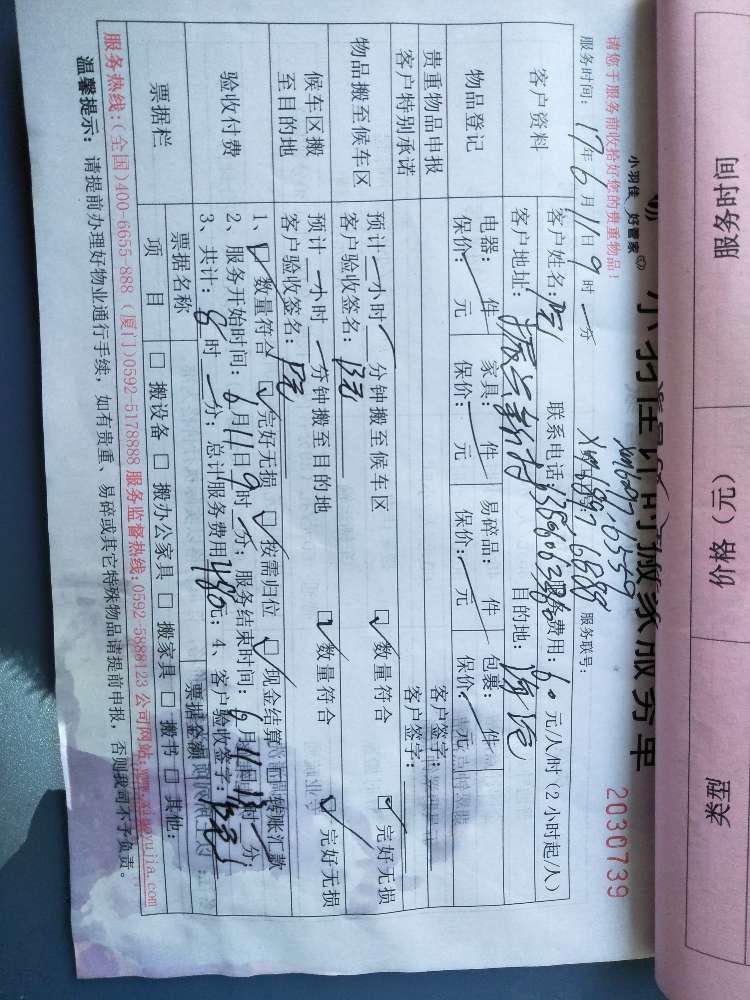 服务时间
价格（元）
类型
小羽佳 好管家
小羽佳 搬家服务单
2030739
请您于服务前收拾好您的贵重物品!
服务时间: 17年6月11日9时一分
服务联号:
客户资料
客户姓名:
联系电话:
服务费用: 60元/人/时(2小时起/人)
客户地址: 振兴新村
目的地:
物品登记
电器: 件 家具: 件 易碎品: 件 包裹: 件
保价: 元 保价: 元 保价: 元 保价: 元
贵重物品申报
客户签字:
客户特别承诺
客户签字:
物品搬至候车区
预计一小时 分钟搬至候车区 数量符合 完好无损
客户验收签名:
候车区搬至目的地
预计一小时一分钟搬至目的地 数量符合 完好无损
客户验收签名:
验收付费
1、 数量符合 完好无损 按需归位 现金结算 转账汇款
2、服务开始时间: 6月11日9时一分; 服务结束时间: 6月11日 时 分;
3、共计: 8时一分; 总计服务费用480元; 4、客户验收签字:
票据栏
票据名称
票据金额
项目
搬设备 搬办公家具 搬家具 搬书 其他:
服务热线:(全国)400-6655-888 (厦门)0592-5178888 服务监督热线:0592-5888123 公司网站:www.xiaoyujia.com
温馨提示: 请提前办理好物业通行手续, 如有贵重、易碎或其它特殊物品请提前申报, 否则我司不予负责。